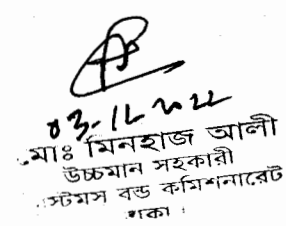 03-12-2022
মোঃ মিনহাজ আলী
উচ্চমান সহকারী
স্টমস বন্ড কমিশনারেট
ঢাকা।